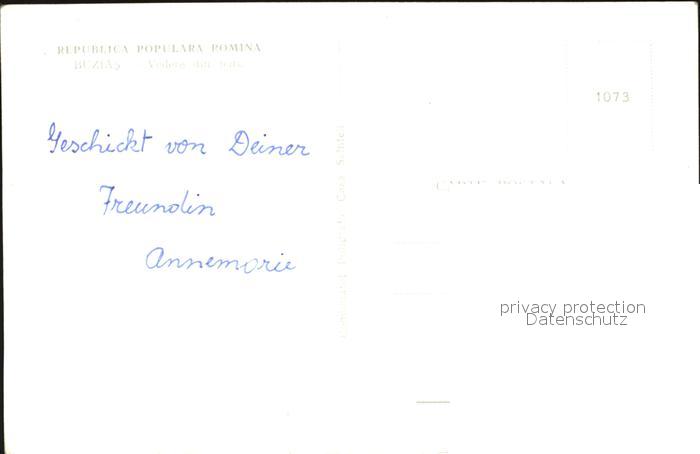 REPUBLICA POPULARA ROMINA
BUZIAȘ - Vedere din
Geschickt von Deiner
Freundin
Annemarie
Combinatul Poligrafic Casa Scînteii
1073
CARTE POSTALA
privacy protection
Datenschutz